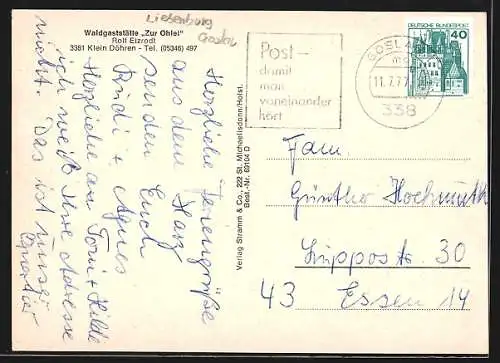 Waldgaststätte „Zur Ohlei"
Rolf Eizrodt
3381 Klein Döhren - Tel. (05346) 497
Liesenburg
Goslar
Post-
damit
man
voneinander
hört
GOSLAR
11.7.77
338
DEUTSCHE BUNDESPOST
40
Herzliche Feriengrüße
aus dem Harz
senden Euch
Rudi + Agnes
Herzliche an Toni + Hilde
ich weiß Ihre Adresse
nicht. Das ist unser
Quartier
Verlag Stramm & Co., 222 St. Michaelisdonn/Holst.
Best.-Nr. 69104 D
Fam.
Günther Hochmuth
Ruppostr. 30
43 Essen 14